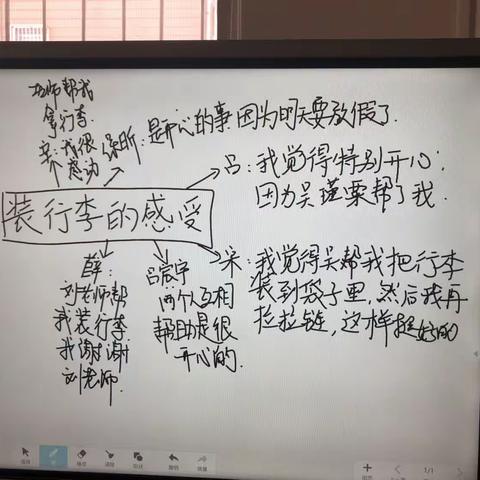 老师帮我
拿行李
我很
感动
昕:是开心的事因为明天要放假了.
吕:我觉得特别开心,
因为吴瑾栗帮了我.
装行李的感受
薛:
刘老师帮
我装行李
我谢谢
刘老师.
吕宸宇
两个人互相
帮助是很
开心的.
宋:我觉得吴帮我把行李
装到袋子里,然后我再
拉拉链,这样挺好的
1/1